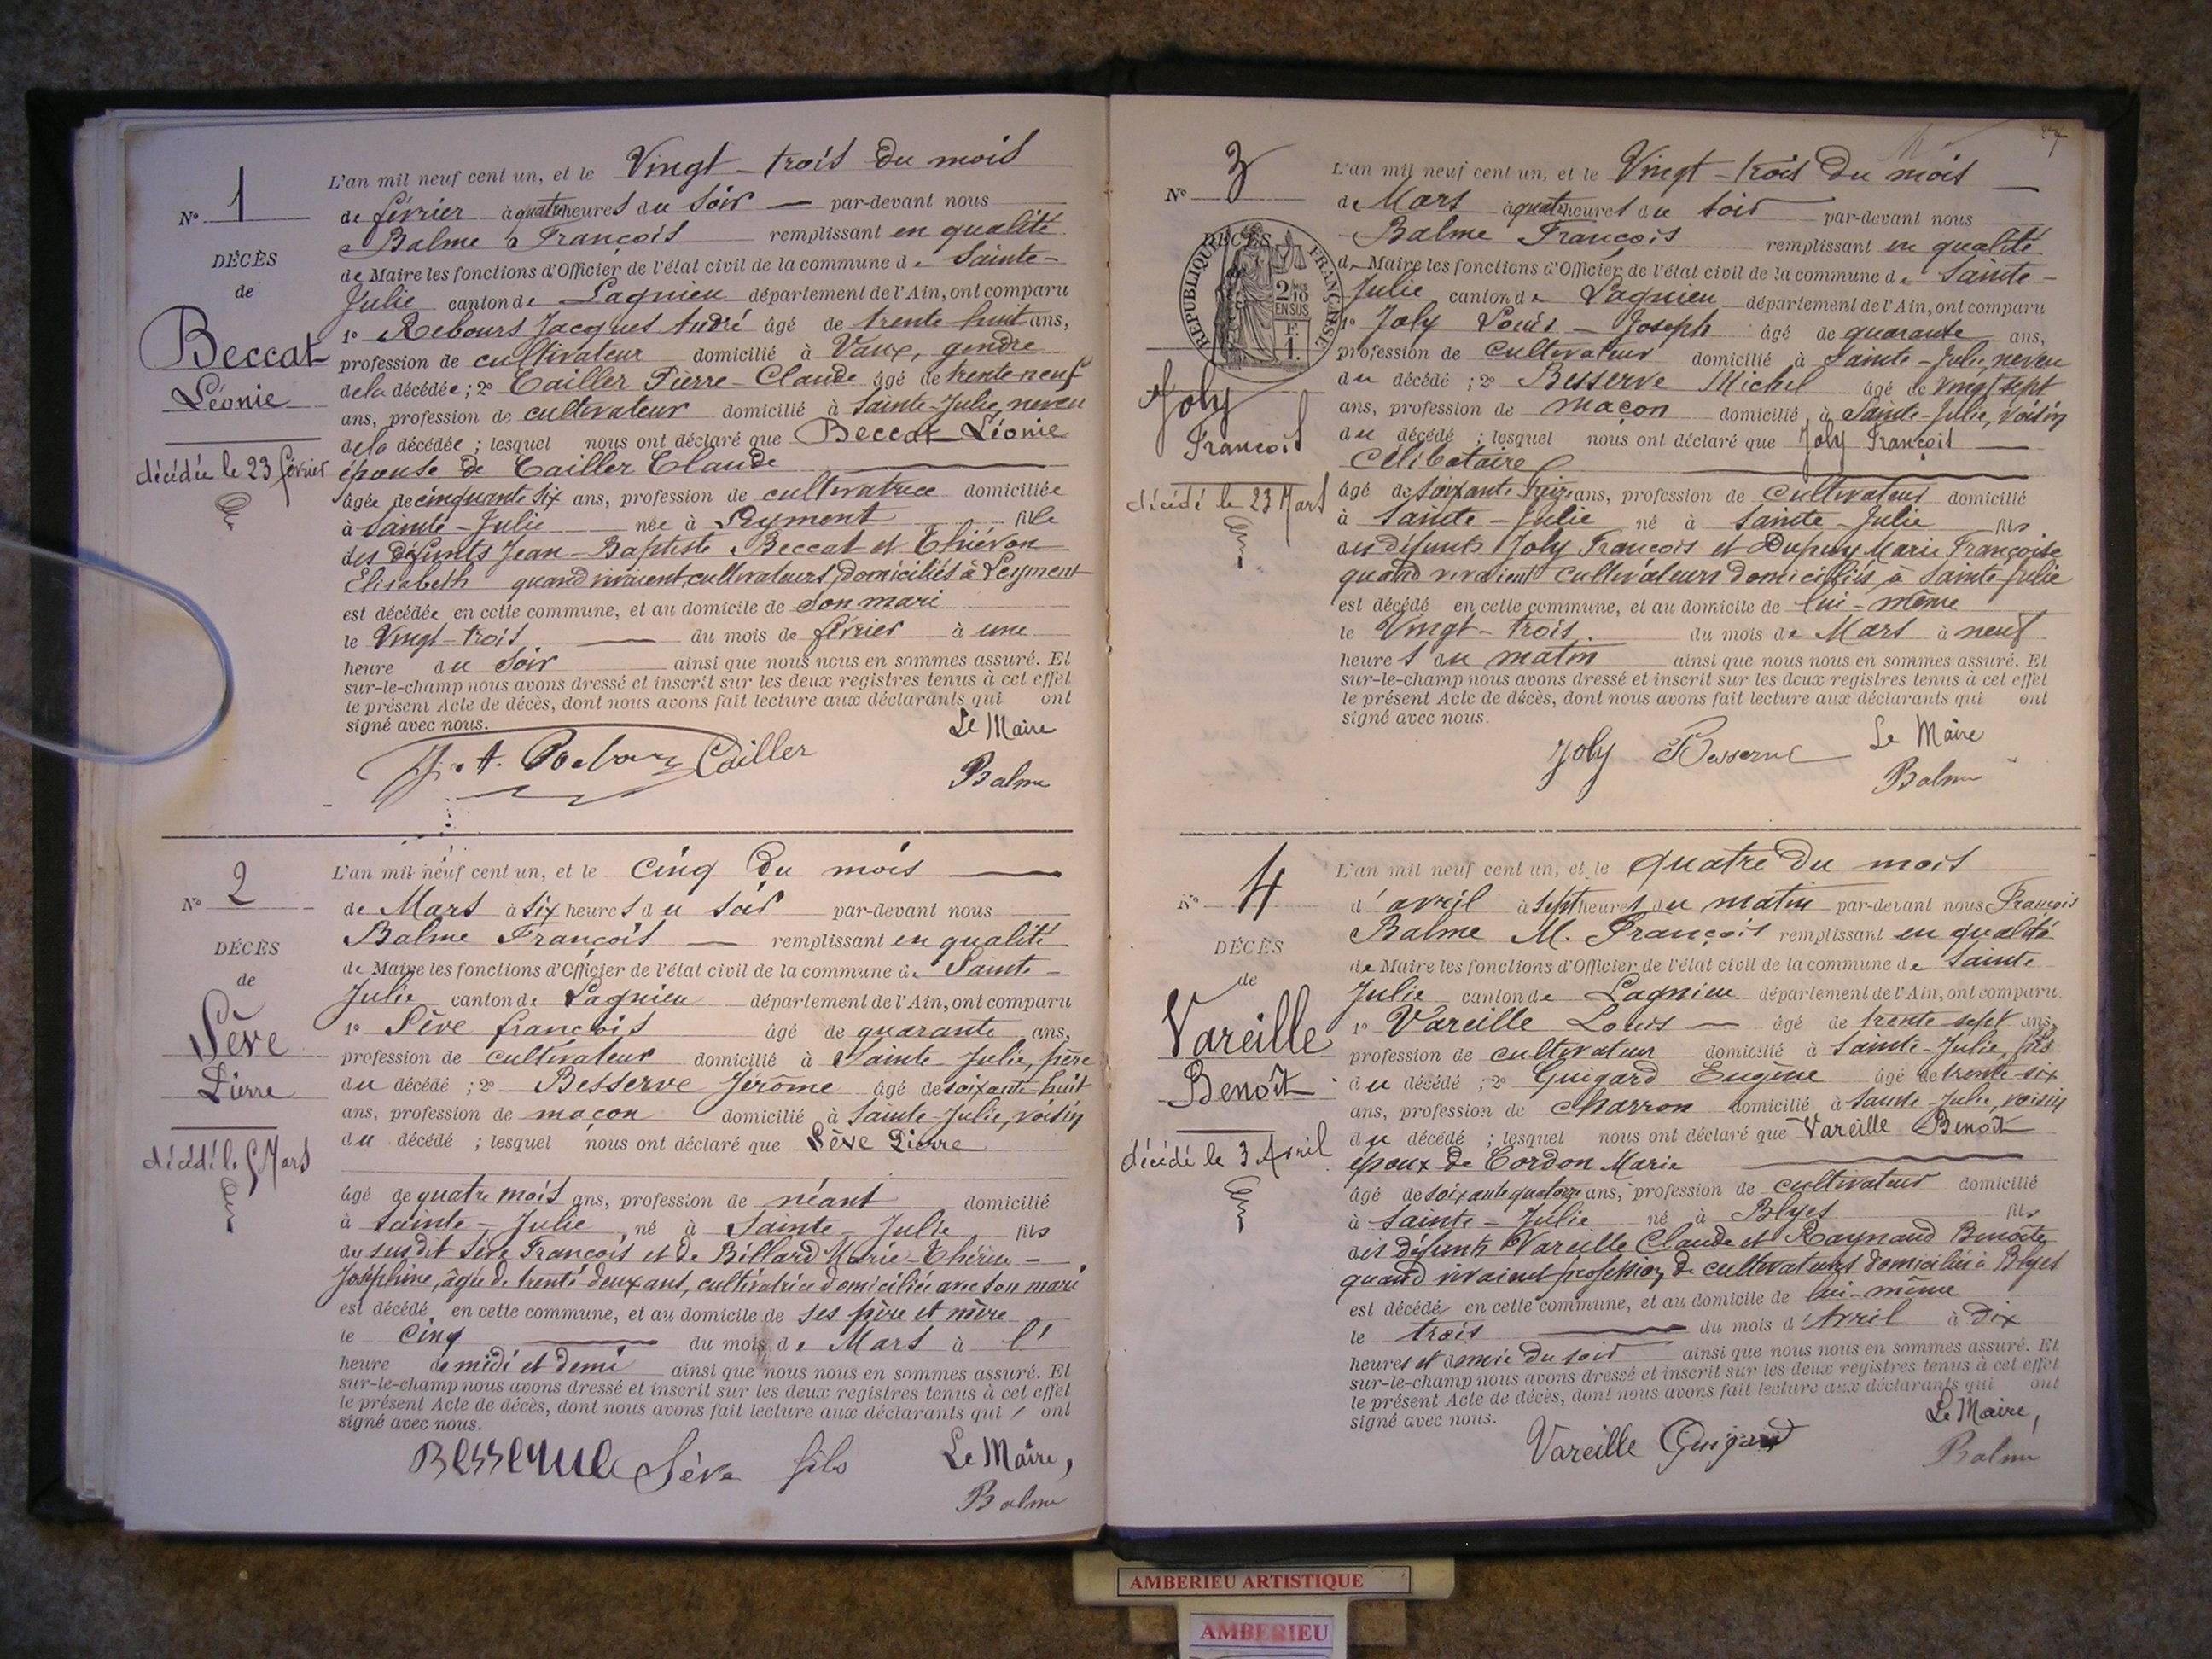 N° 1
DÉCÈS
de
Beccat
Léonie
décédée le 23 février
L'an mil neuf cent un, et le Vingt-trois du mois
de février à quatre heures du soir par-devant nous
Balme François remplissant en qualité
de Maire les fonctions d'Officier de l'état civil de la commune de Sainte-
Julie canton de Lagnieu département de l'Ain, ont comparu
1° Rebours Jacques André âgé de trente huit ans,
profession de cultivateur domicilié à Vaux, gendre
de la décédée ; 2° Cailler Pierre-Claude âgé de trente-neuf
ans, profession de cultivateur domicilié à Sainte-Julie, neveu
de la décédée ; lesquel nous ont déclaré que Beccat Léonie
épouse de Cailler Claude
âgée de cinquante six ans, profession de cultivatrice domiciliée
à Sainte-Julie née à Leyment fille
des défunts Jean-Baptiste Beccat et Thiévon
Elisabeth quand vivaient cultivateurs, domiciliés à Leyment
est décédée en cette commune, et au domicile de son mari
le Vingt-trois du mois de février à une
heure du soir ainsi que nous nous en sommes assuré. Et
sur-le-champ nous avons dressé et inscrit sur les deux registres tenus à cet effet
le présent Acte de décès, dont nous avons fait lecture aux déclarants qui ont
signé avec nous.
Le Maire
J. A. Rebours Cailler
Balme
N° 2
DÉCÈS
de
Sève
Pierre
décédé le 5 Mars
L'an mil neuf cent un, et le cinq du mois
de Mars à six heures du soir par-devant nous
Balme François remplissant en qualité
de Maire les fonctions d'Officier de l'état civil de la commune de Sainte-
Julie canton de Lagnieu département de l'Ain, ont comparu
1° Sève françois âgé de quarante ans,
profession de cultivateur domicilié à Sainte-Julie, père
du décédé ; 2° Besserve Jérôme âgé de soixante-huit
ans, profession de maçon domicilié à Sainte-Julie, voisin
du décédé ; lesquel nous ont déclaré que Sève Pierre
âgé de quatre mois ans, profession de néant domicilié
à Sainte-Julie né à Sainte-Julie fils
du susdit Sève François et de Billard Marie-Thérèse-
Joséphine, âgée de trente-deux ans, cultivatrice domiciliée avec son mari
est décédé en cette commune, et au domicile de ses père et mère
le cinq du mois de Mars à l'
heure de midi et demi ainsi que nous nous en sommes assuré. Et
sur-le-champ nous avons dressé et inscrit sur les deux registres tenus à cet effet
le présent Acte de décès, dont nous avons fait lecture aux déclarants qui ont
signé avec nous.
Besserve Sève fils Le Maire,
Balme
N° 3
DÉCÈS
RÉPUBLIQUE FRANÇAISE
2/10
EN SUS
F.
1.
Joly
François
décédé le 23 Mars
L'an mil neuf cent un, et le Vingt-trois du mois
de Mars à quatre heures du soir par-devant nous
Balme François remplissant en qualité
de Maire les fonctions d'Officier de l'état civil de la commune de Sainte-
Julie canton de Lagnieu département de l'Ain, ont comparu
1° Joly Louis-Joseph âgé de quarante ans,
profession de cultivateur domicilié à Sainte-Julie, neveu
du décédé ; 2° Besserve Michel âgé de vingt sept
ans, profession de maçon domicilié à Sainte-Julie, voisin
du décédé ; lesquel nous ont déclaré que Joly François
célibataire
âgé de soixante ans, profession de cultivateur domicilié
à Sainte-Julie né à Sainte-Julie fils
des défunts Joly François et Dupuy Marie Françoise
quand vivaient cultivateurs domiciliés à Sainte-Julie
est décédé en cette commune, et au domicile de lui-même
le Vingt-trois du mois de Mars à neuf
heures du matin ainsi que nous nous en sommes assuré. Et
sur-le-champ nous avons dressé et inscrit sur les deux registres tenus à cet effet
le présent Acte de décès, dont nous avons fait lecture aux déclarants qui ont
signé avec nous.
Joly Besserve Le Maire
Balme
N° 4
DÉCÈS
de
Vareille
Benoît
décédé le 3 Avril
L'an mil neuf cent un, et le quatre du mois
d'avril à sept heures du matin par-devant nous François
Balme M. François remplissant en qualité
de Maire les fonctions d'Officier de l'état civil de la commune de Sainte
Julie canton de Lagnieu département de l'Ain, ont comparu
1° Vareille Louis âgé de trente-sept ans,
profession de cultivateur domicilié à Sainte-Julie, fils
du décédé ; 2° Guigard Eugène âgé de trente-six
ans, profession de charron domicilié à Sainte-Julie, voisin
du décédé ; lesquel nous ont déclaré que Vareille Benoît
époux de Cordon Marie
âgé de soixante quatorze ans, profession de cultivateur domicilié
à Sainte-Julie né à Blyes fils
des défunts Vareille Claude et Raynaud Benoîte
quand vivaient profession de cultivateurs domiciliés à Blyes
est décédé en cette commune, et au domicile de lui-même
le trois du mois d'Avril à dix
heures et demie du soir ainsi que nous nous en sommes assuré. Et
sur-le-champ nous avons dressé et inscrit sur les deux registres tenus à cet effet
le présent Acte de décès, dont nous avons fait lecture aux déclarants qui ont
signé avec nous.
Le Maire,
Vareille Guigard
Balme
AMBERIEU ARTISTIQUE
AMBERIEU